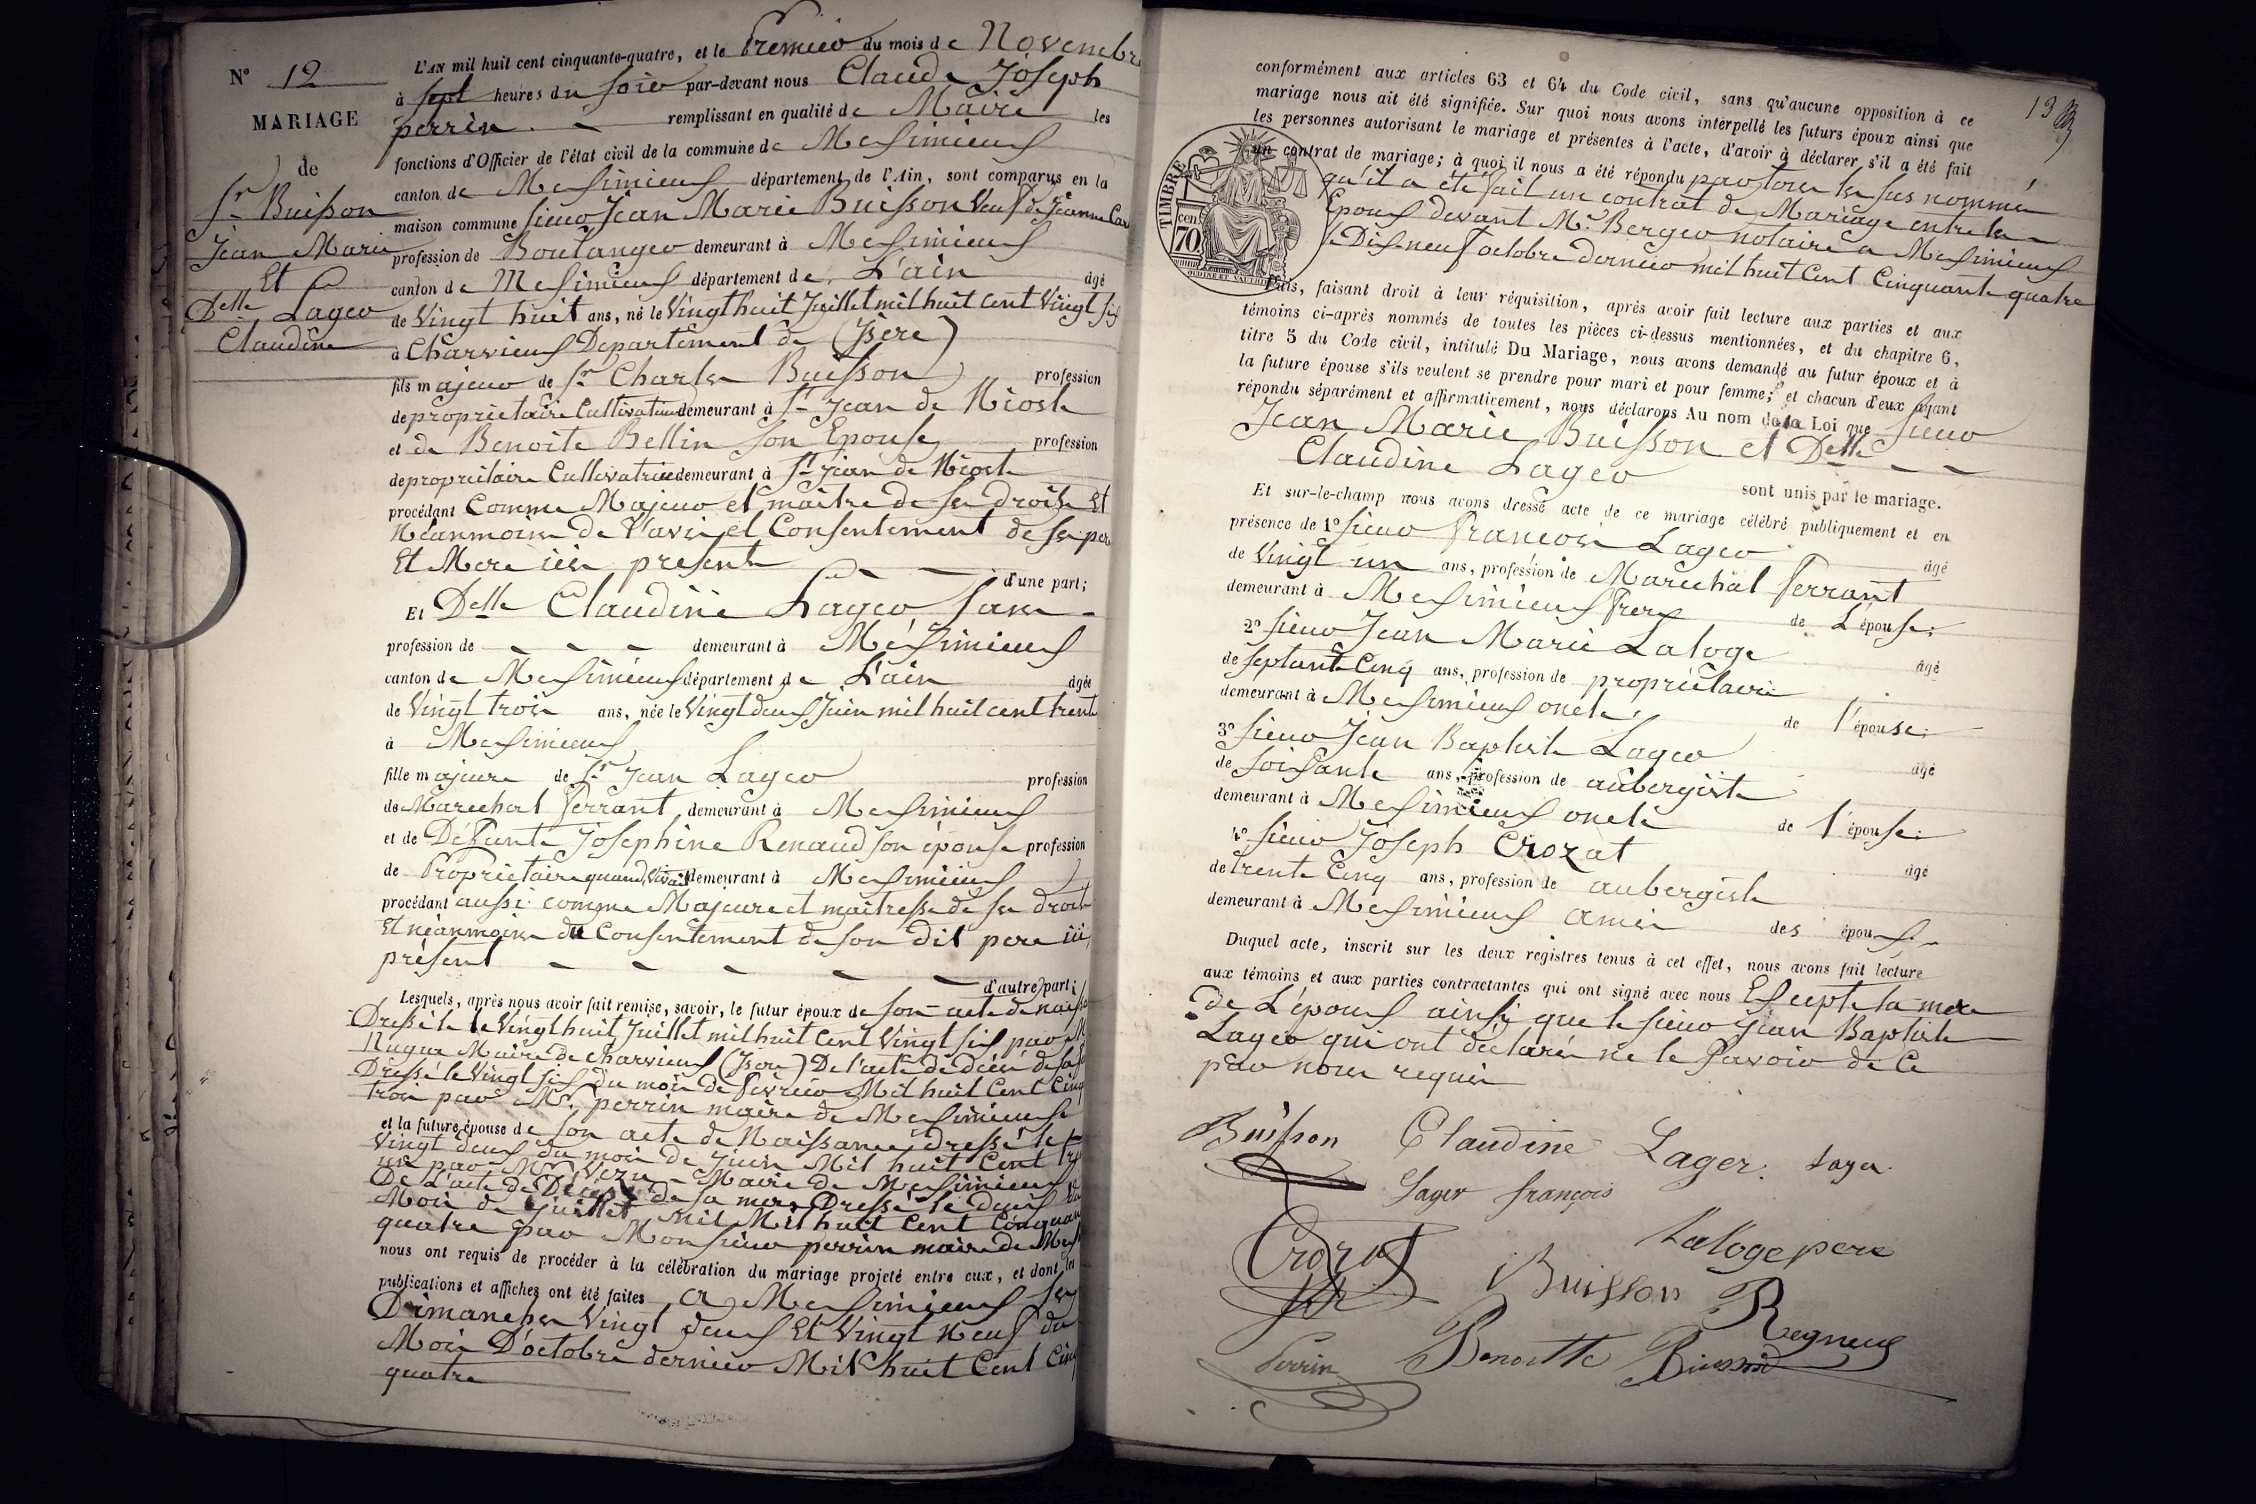 N° 12
MARIAGE
de
Sr Buisson
Jean Marie
Et
Delle Lager
Claudine
L'AN mil huit cent cinquante-quatre, et le Premier du mois de Novembre
à Sept heures du Soir par-devant nous Claude Joseph
perrin remplissant en qualité de Maire les
fonctions d'Officier de l'état civil de la commune de Meximieux
canton de Meximieux département de l'Ain, sont comparus en la
maison commune Sieur Jean Marie Buisson Veuf de Jeanne
profession de Boulanger demeurant à Meximieux
canton de Meximieux département de L'ain âgé
de Vingt huit ans, né le Vingt huit Juillet mil huit cent Vingt Six
à Charvieux Departement de (Isere)
fils majeur de Sr Charles Buisson profession
de propriétaire Cultivateur demeurant à St Jean de Niost
et de Benoite Bellin son Epouse profession
de propriétaire Cultivatrice demeurant à St Jean de Niost
procédant Comme Majeur et maitre de ses droits Et
Néanmoins de l'avis et Consentement de ses pere
Et Mere ici presents d'une part;
Et Delle Claudine Lager sans
profession de demeurant à Méximieux
canton de Meximieux département de L'ain âgée
de Vingt trois ans, née le Vingt deux Juin mil huit cent trent
à Meximieux
fille majeure de Sr Jean Lager profession
de Maréchal ferrant demeurant à Meximieux
et de Défunte Josephine Renaud son épouse profession
de Propriétaire quand vivait demeurant à Meximieux
procédant aussi comme Majeure et maitresse de ses droits
Et néanmoins du Consentement de son dit pere ici
présent d'autre part;
Lesquels, après nous avoir fait remise, savoir, le futur époux de son acte de naiss
Dressé le Vingt huit Juillet mil huit Cent Vingt six par
Maire de Charvieux (Isere) De l'acte de décès de sa
Dressé le Vingt six du mois de Fevrier Mil huit Cent Cinq
trois par Mr perrin maire de Meximieux
et la future épouse de son acte de Naissance dressé le
Vingt deux du mois de Juin Mil huit Cent tre
un par Mr Maire de Meximieux
De L'acte de Décès de sa mere Dressé le deux du
Mois de Juillet Mil huit Cent Cinquan
quatre par Monsieur perrin maire de Mex
nous ont requis de procéder à la célébration du mariage projeté entre eux, et dont les
publications et affiches ont été faites a Meximieux les
Dimanches Vingt deux Et Vingt Neuf du
Mois D'octobre dernier Mil huit Cent Cinq
quatre
13
conformément aux articles 63 et 64 du Code civil, sans qu'aucune opposition à ce
mariage nous ait été signifiée. Sur quoi nous avons interpellé les futurs époux ainsi que
les personnes autorisant le mariage et présentes à l'acte, d'avoir à déclarer s'il a été fait
un contrat de mariage; à quoi il nous a été répondu par tous les sus nommés
qu'il a été fait un contrat de Mariage entre les
Epoux devant Mr Berger notaire a Meximieux
le Dix neuf octobre dernier mil huit Cent Cinquante quatre
TIMBRE
70 cent
Puis, faisant droit à leur réquisition, après avoir fait lecture aux parties et aux
témoins ci-après nommés de toutes les pièces ci-dessus mentionnées, et du chapitre 6,
titre 5 du Code civil, intitulé Du Mariage, nous avons demandé au futur époux et à
la future épouse s'ils veulent se prendre pour mari et pour femme; et chacun d'eux ayant
répondu séparément et affirmativement, nous déclarons Au nom de la Loi que Sieur
Jean Marie Buisson et Delle
Claudine Lager sont unis par le mariage.
Et sur-le-champ nous avons dressé acte de ce mariage célébré publiquement et en
présence de 1° Sieur François Lager âgé
de Vingt un ans, profession de Maréchal ferrant
demeurant à Meximieux frere de L'épouse
2° Sieur Jean Marie Laloge âgé
de septante Cinq ans, profession de propriétaire
demeurant à Meximieux oncle de l'épouse
3° Sieur Jean Baptiste Lager âgé
de Soixante ans, profession de aubergiste
demeurant à Meximieux oncle de l'épouse
4° Sieur Joseph Crozat âgé
de trente Cinq ans, profession de aubergiste
demeurant à Meximieux amis des époux
Duquel acte, inscrit sur les deux registres tenus à cet effet, nous avons fait lecture
aux témoins et aux parties contractantes qui ont signé avec nous Excepte la mere
de L'époux ainsi que le sieur Jean Baptiste
Lager qui ont déclarés ne le Savoir de Ce
par nous requis
Buisson Claudine Lager. Lager
Lager françois
Laloge pere
Crozat Buisson Regneux
Perrin Benoitte Buisson